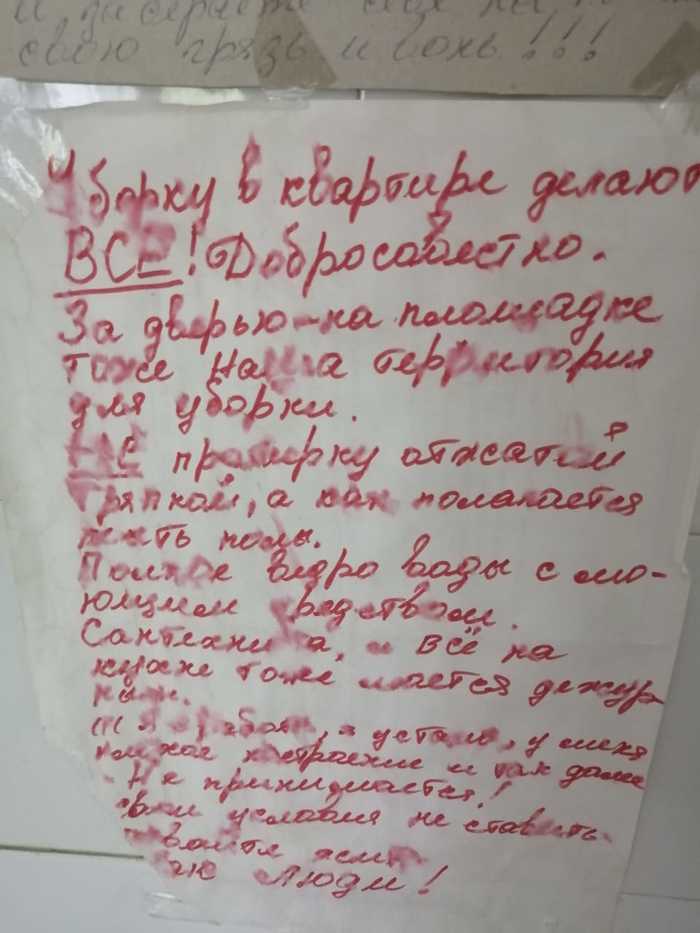 свою грязь и вонь!!!
Уборку в квартире делают
ВСЕ! Добросовестно.
За дверью – на площадке
тоже Наша территория
для уборки.
НЕ протирку отжатой
тряпкой, а как полагается
мыть полы.
Полное ведро воды с мо-
ющим средством.
Сантехника, и ВСЁ на
кухне тоже моется дежур-
ным.
я устала, у меня
плохое настроение и так далее
Не принимается!
свои условия не ставить.
Давайте жить
как Люди!